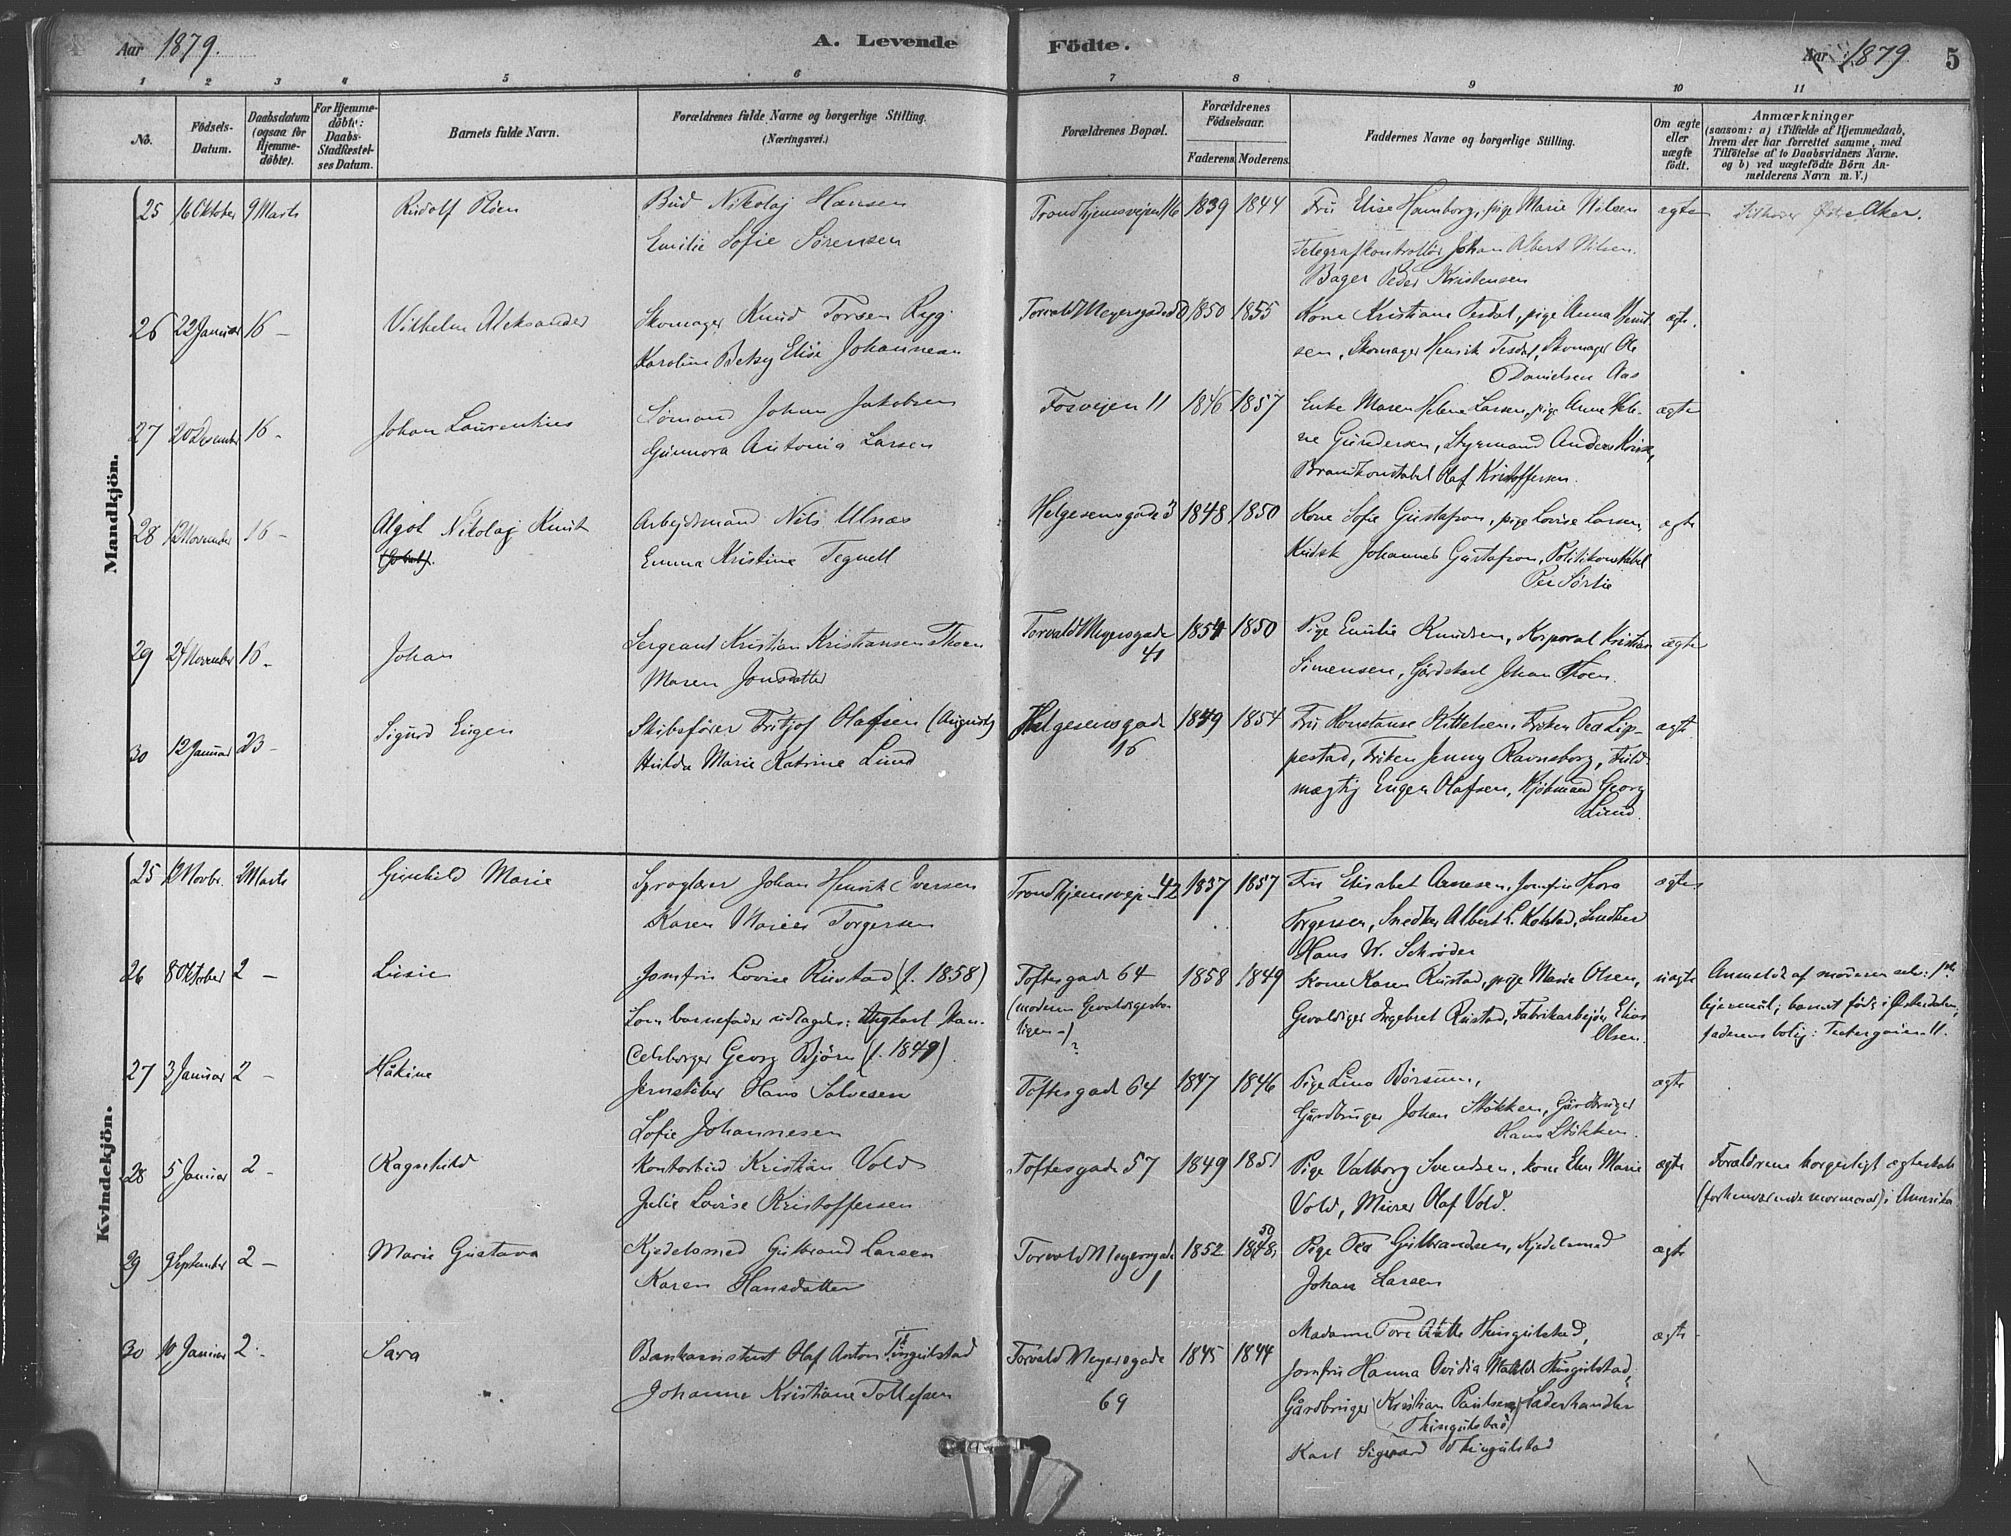 Aar 1879. A. Levende Födte. Aar 1879 5
1 2 3 4 5 6 7 8 9 10 11
No. Födsels-Datum. Daabsdatum (ogsaa for Hjemme-döbte). For Hjemme-döbte: Daabs-Stadfæstel-ses Datum. Barnets fulde Navn. Forældrenes fulde Navne og borgerlige Stilling. (Næringsvei.) Forældrenes Bopæl. Forældrenes Födselsaar. Faderens. Moderens. Faddernes Navne og borgerlige Stilling. Om ægte eller uægte födt. Anmærkninger (saasom: a) i Tilfælde af Hjemmedaab, hvem der har forrettet samme, med Tilföielse af to Daabsvidners Navne. og b) ved uægtefödte Börn An-melderens Navn m. V.)
Mandkjön.
25 16 Oktober 9 Marts Rudolf Bud Nikolaj Hansen Trondhjemsvejen 16 1839 1844 Fru Elise Hamborg, pige Marie Nilsen ægte Aker.
Emilie Sofie Sørensen Telegrafkontrollør Johan Albert Nilsen.
Bager Peder Kristensen
26 22 Januar 16 – Vilhelm Aleksander Skomager Knud Torsen Ryg. Torvald Meyersgade 1850 1855 Kone Kristiane Tesdal, pige Anna ægte.
Karoline Betsy Elise Johannesen sen, Skomager Henrik Tesdal, Skomager Ole
Danielsen Aas
27 20 Desember 16 – Johan Laurentius Sømand Johan Jakobsen Fosvejen 11 1846 1857 Enke Maren Helene Larsen, pige Anne Hele- ægte
Gunnora Antonia Larsen ne Gundersen, Styrmand Anders
Brandkonstabel Olaf Kristoffersen.
28 12 November 16 – Algot Nikolaj Knut Arbejdsmand Nils Ulnæs Helgesensgade 3 1848 1850 Kone Sofie Gustafson, pige Lovise Larsen, ægte
Emma Kristine Tegnell Kudsk Johannes Gustafson, Politikonstabel
Per Sørlie
29 24 November 16 – Johan Sergeant Kristian Kristiansen Thoen Torvald Meyersgade 1854 1850 Pige Emilie Knudsen, Korporal Kristian ægte
Maren Jonsdatter 41 Simensen, Gårdskarl Johan Thoen.
30 12 Januar 23 – Sigurd Eugen Skibsfører Fritjof Olafsen (August) Helgesensgade 1849 1854 Fru Konstanse Kittelsen, Frøken Tea Lip- ægte
Hulda Marie Katrine Lund 16 pestad, Frøken Jenny Ravnsborg, Fuld-
mægtig Eugen Olafsen, Kjøbmand Georg
Lund.
Kvindekjön.
25 12 Novbr. 2 Marts Gunhild Marie Sproglærer Johan Henrik Iversen Trondhjemsvejen 42 1837 1857 Fru Elisabet Arnesen, Jomfru Thora ægte
Karen Marie Torgersen Torgersen, Snedker Albert L. Kolstad, Snedker
Hans W. Schrøder
26 8 Oktober 2 – Lusie Jomfru Lovise Rustad (f. 1858) Toftesgade 64 1858 1849 Kone Karen Rustad, pige Marie Olsen, uægte Anmeldt af moderen selv:
Som barnefader udlagdes: Ungkarl Han- (moderen Gevaldigerbo- Gevaldiger Ingebret Rustad, Fabrikarbejder Elias barnet født i
delsborger Georg Bjørn (f. 1849). ligen –)? Olsen. faderens bolig: 11.
27 3 Januar 2 – Håkine Jernstøber Hans Salvesen Toftesgade 64 1847 1846 Pige Lina Børsum, ægte
Sofie Johannesen Gårdbruger Johan Støkken, Gårdbruger
Hans Støkken.
28 5 Januar 2 – Ragnhild Kontorbud Kristian Vold Toftesgade 57 1849 1851 Pige Valborg Svendsen, kone Elen Marie ægte Forældrene borgerligt ægteskab
Julie Lovise Kristoffersen Vold, Murer Olaf Vold. (forhenværende mormoner) i Amerika
29 9 September 2 – Marie Gustava Kjedelsmed Gulbrand Larsen Torvald Meyersgade 1852 1848, 50 Pige Tea Gulbrandsen, Kjedelsmed ægte
Karen Hansdatter 1 Johan Larsen
30 10 Januar 2 – Sara Bankassistent Olaf Anton Thingulstad Torvald Meyersgade 1845 1844 Madame Tore Thingulstad, ægte
Johanne Kristiane Tollefsen 69 Jomfru Hanna Ovidia Thingulstad,
Gårdbruger (Kristian Paulsen Thingulstad) Læderhandler
Karl Sigvard Thingulstad